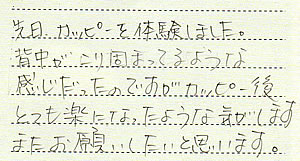 先日 カッピーを体験しました。
背中がこり固まってるような
感じだったのですがカッピー後
とても楽になったような気がします
またお願いしたいと思います。